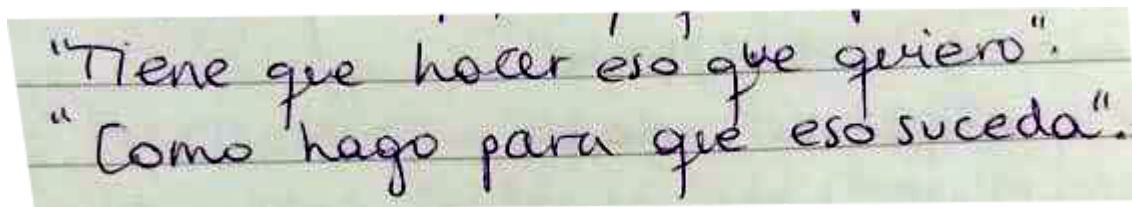 "Tiene que hacer eso que quiero".
"Como hago para que eso suceda".